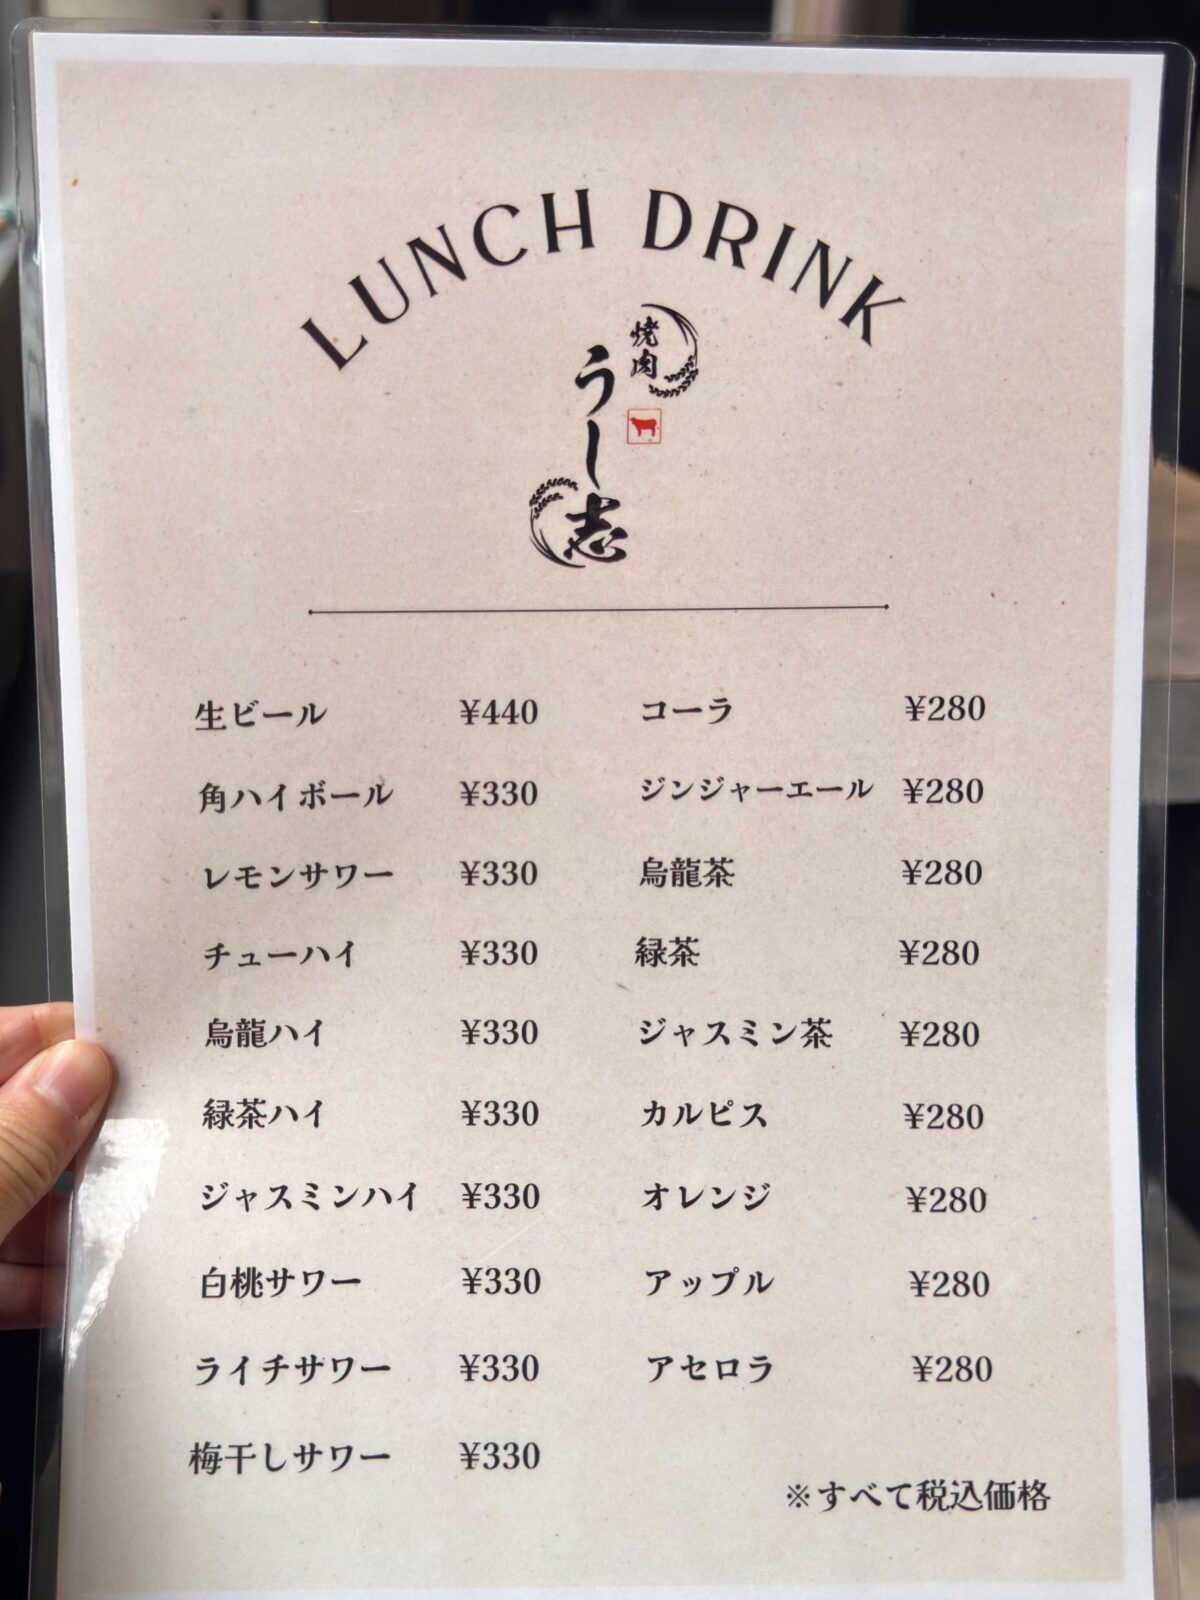 LUNCH DRINK
焼肉
うし志
生ビール ¥440
角ハイボール ¥330
レモンサワー ¥330
チューハイ ¥330
烏龍ハイ ¥330
緑茶ハイ ¥330
ジャスミンハイ ¥330
白桃サワー ¥330
ライチサワー ¥330
梅干しサワー ¥330
コーラ ¥280
ジンジャーエール ¥280
烏龍茶 ¥280
緑茶 ¥280
ジャスミン茶 ¥280
カルピス ¥280
オレンジ ¥280
アップル ¥280
アセロラ ¥280
※すべて税込価格